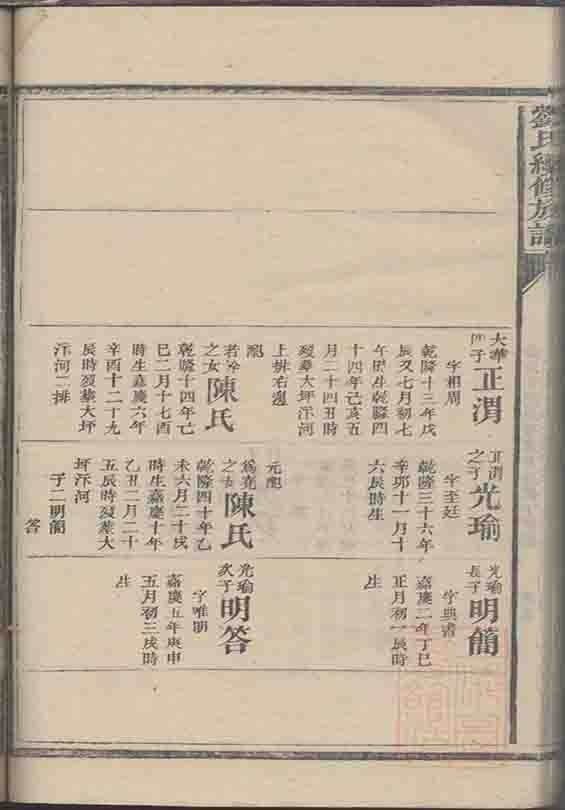 劉氏經修族譜
大華
四子
正渭
字相周
乾隆十三年戊
辰又七月初七
午時生乾隆四
十四年己亥五
月二十四丑時
歿葬大坪汴河
上排右邊
配
若
之女
陳氏
乾隆十四年己
巳二月十七酉
時生嘉慶六年
辛酉十二十九
辰時歿葬大坪
汴河二排
正渭
之子
光瑜
字至廷
乾隆三十六年
辛卯十一月十
六辰時生
元配
為堯
之女
陳氏
乾隆四十年乙
未六月二十戌
時生嘉慶十年
乙丑二月二十
五辰時歿葬大
坪汴河
子二明簡
答
光瑜
長子
明簡
字典書
嘉慶二年丁巳
正月初一辰時
生
光瑜
次子
明答
字唯明
嘉慶五年庚申
五月初三戌時
生